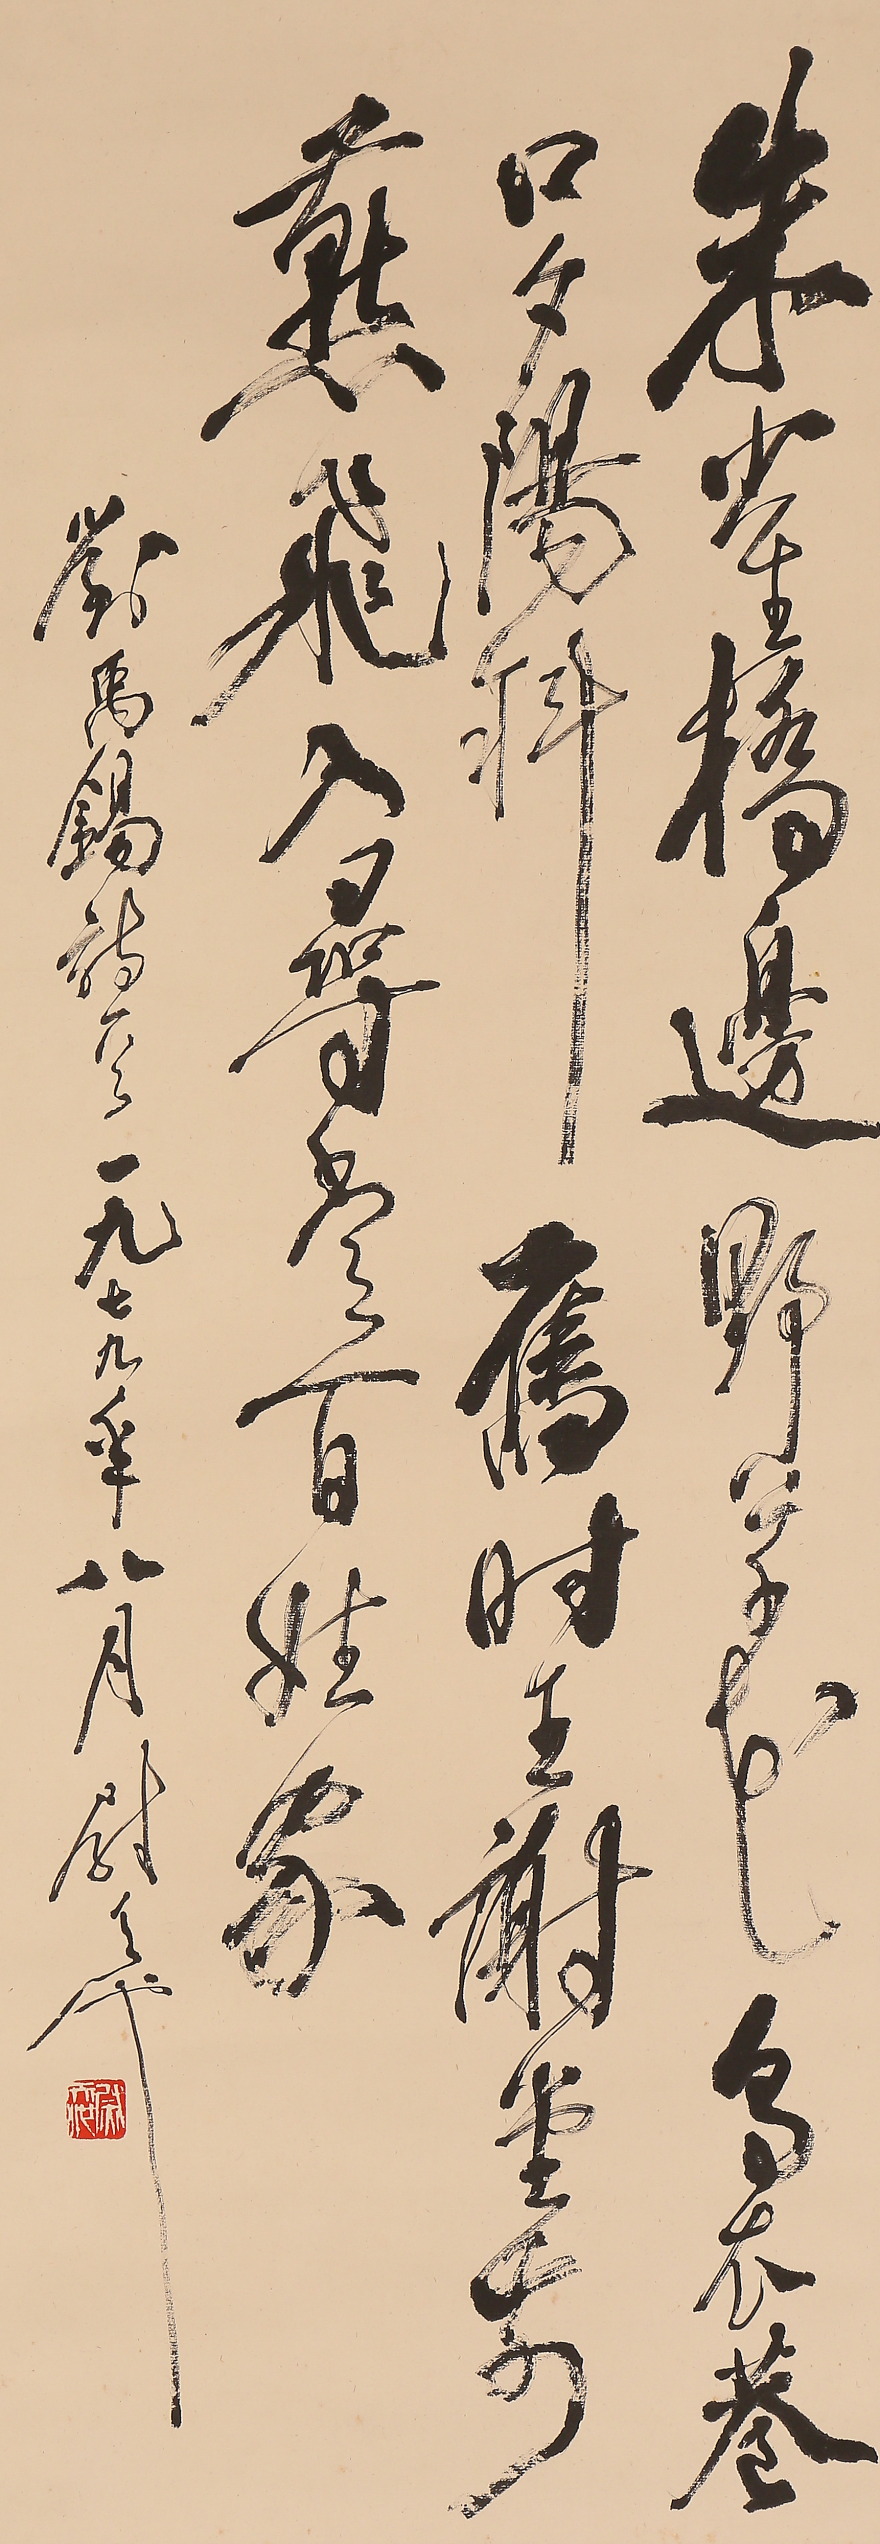 朱雀橋邊野草花烏衣巷
口夕陽斜舊时王謝堂前
燕飛入尋常百姓家
劉禹錫詩意一九七九年八月尉天池